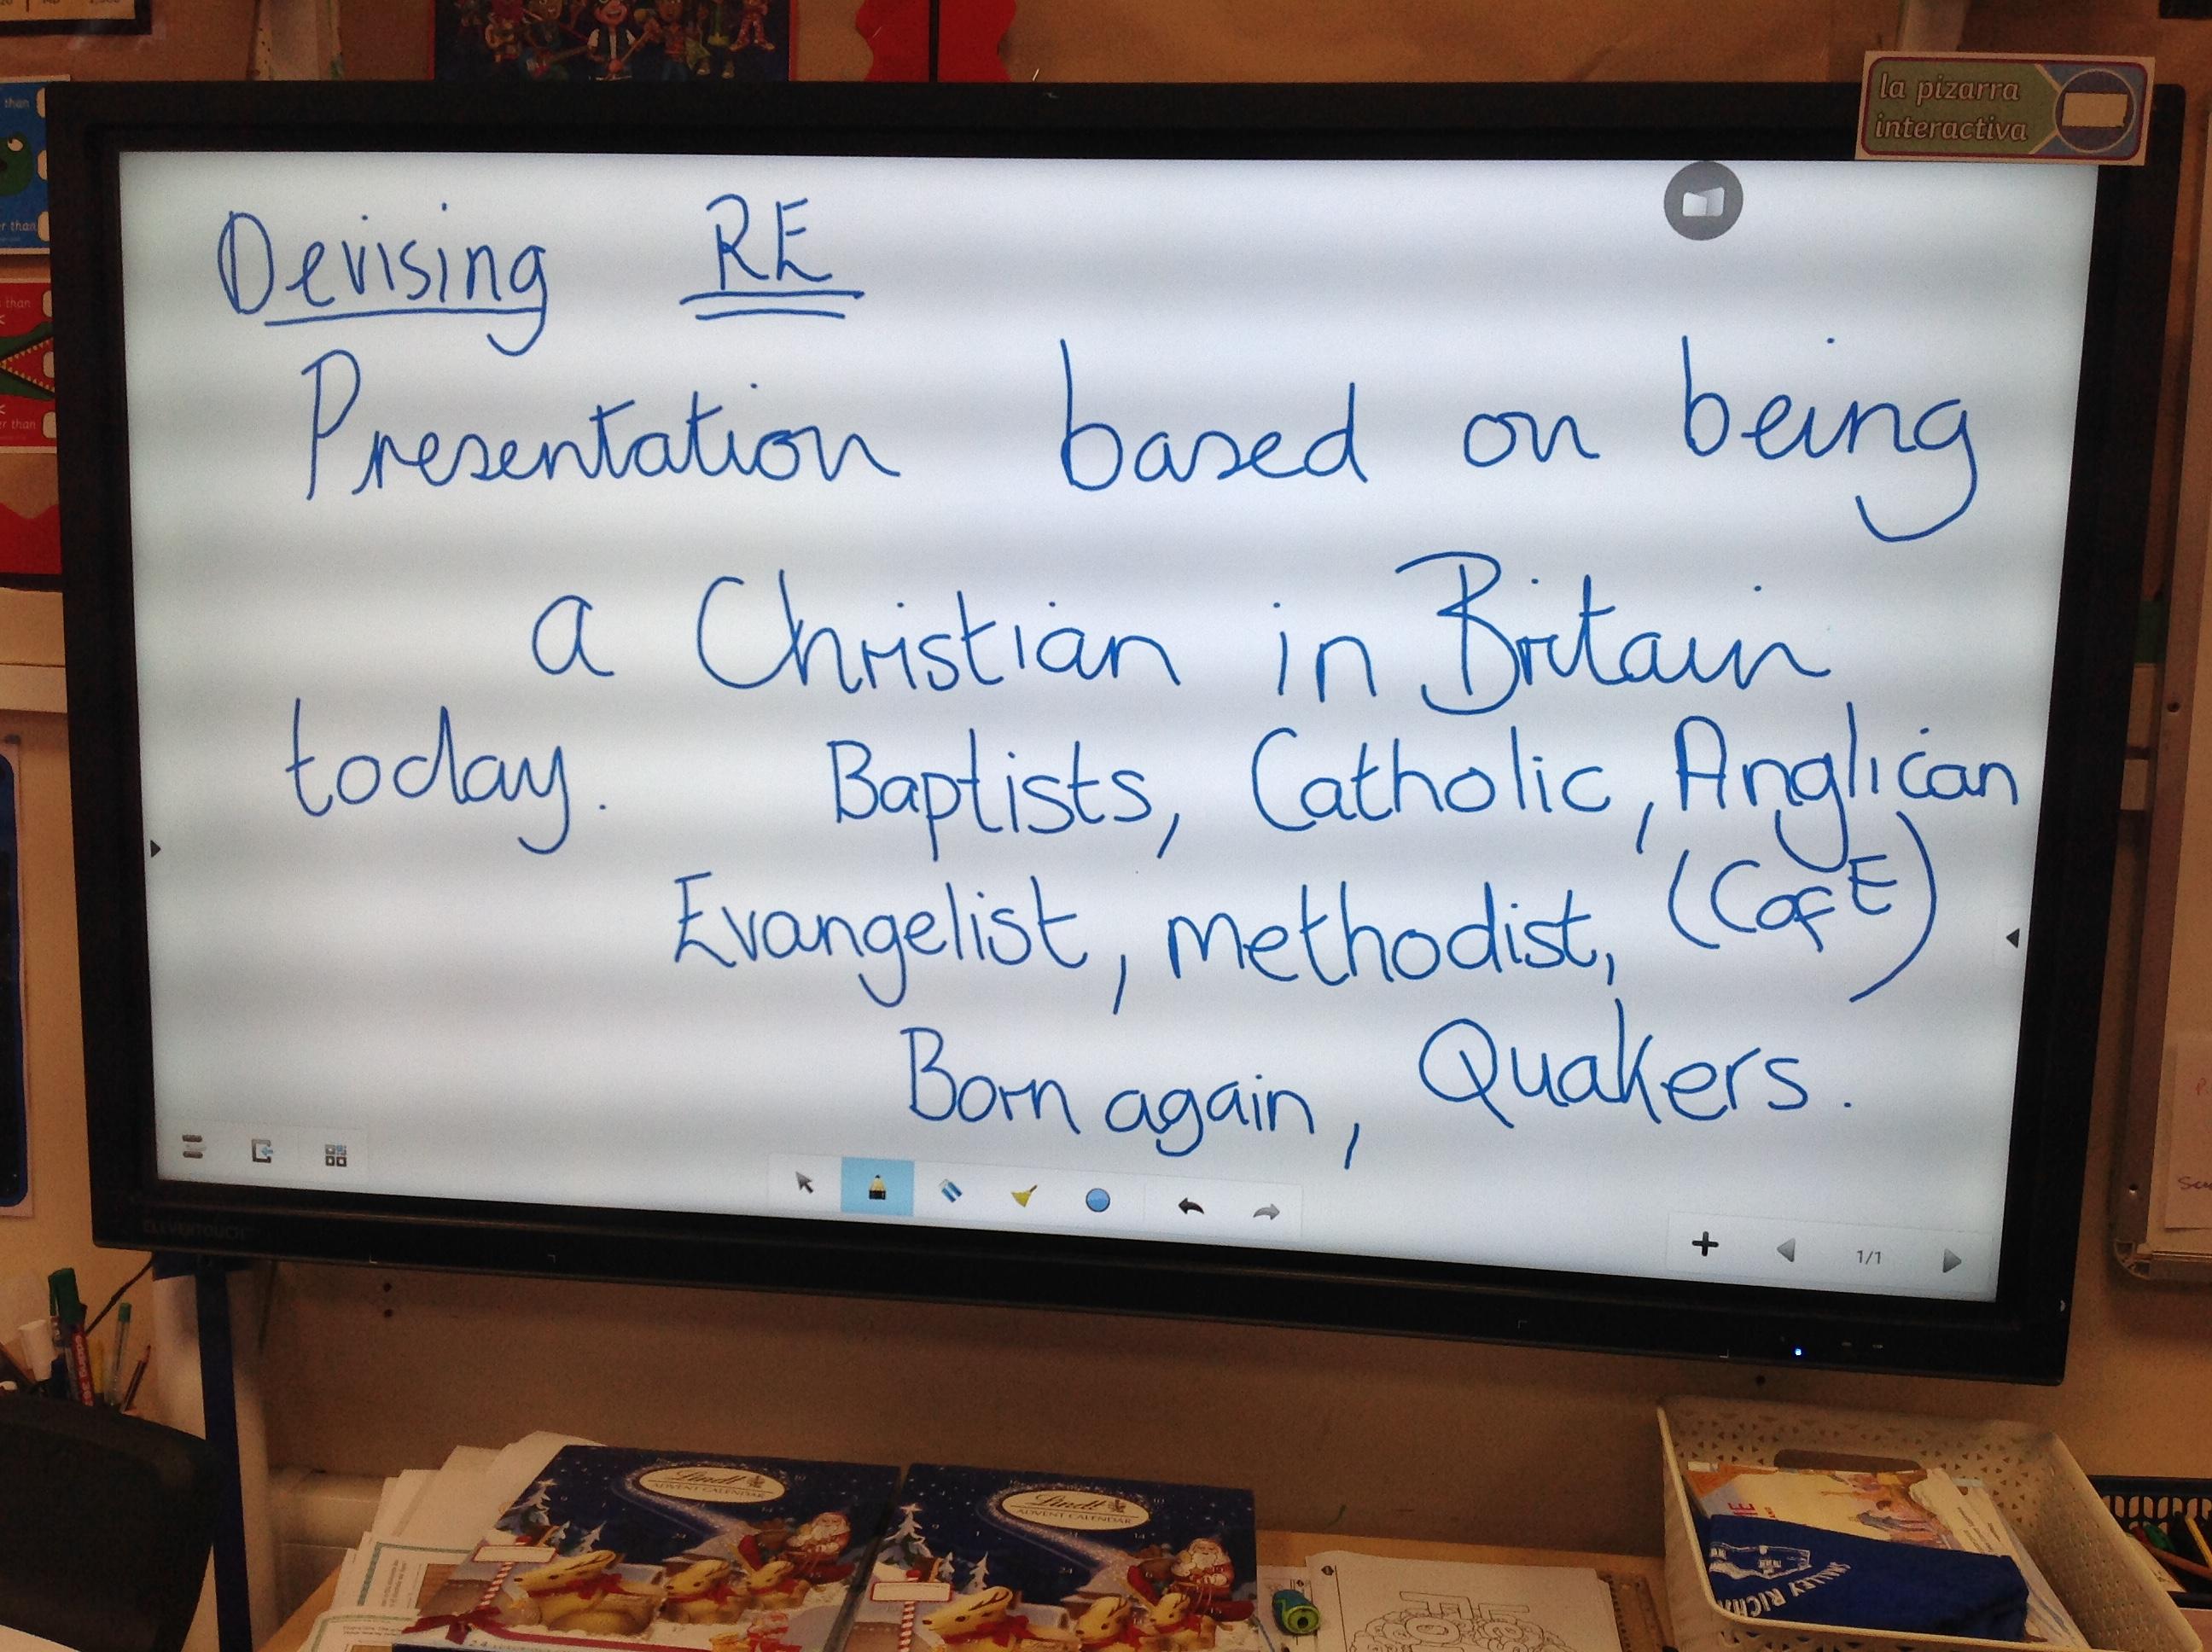 la pizarra
interactiva
Devising RE
Presentation based on being
a Christian in Britain
today. Baptists, Catholic, Anglican
(CofE)
Evangelist, methodist,
Born again, Quakers.
1/1
CLEVERTOUCH
Lindt
ADVENT CALENDAR
Lindt
ADVENT CALENDAR
than
than
than